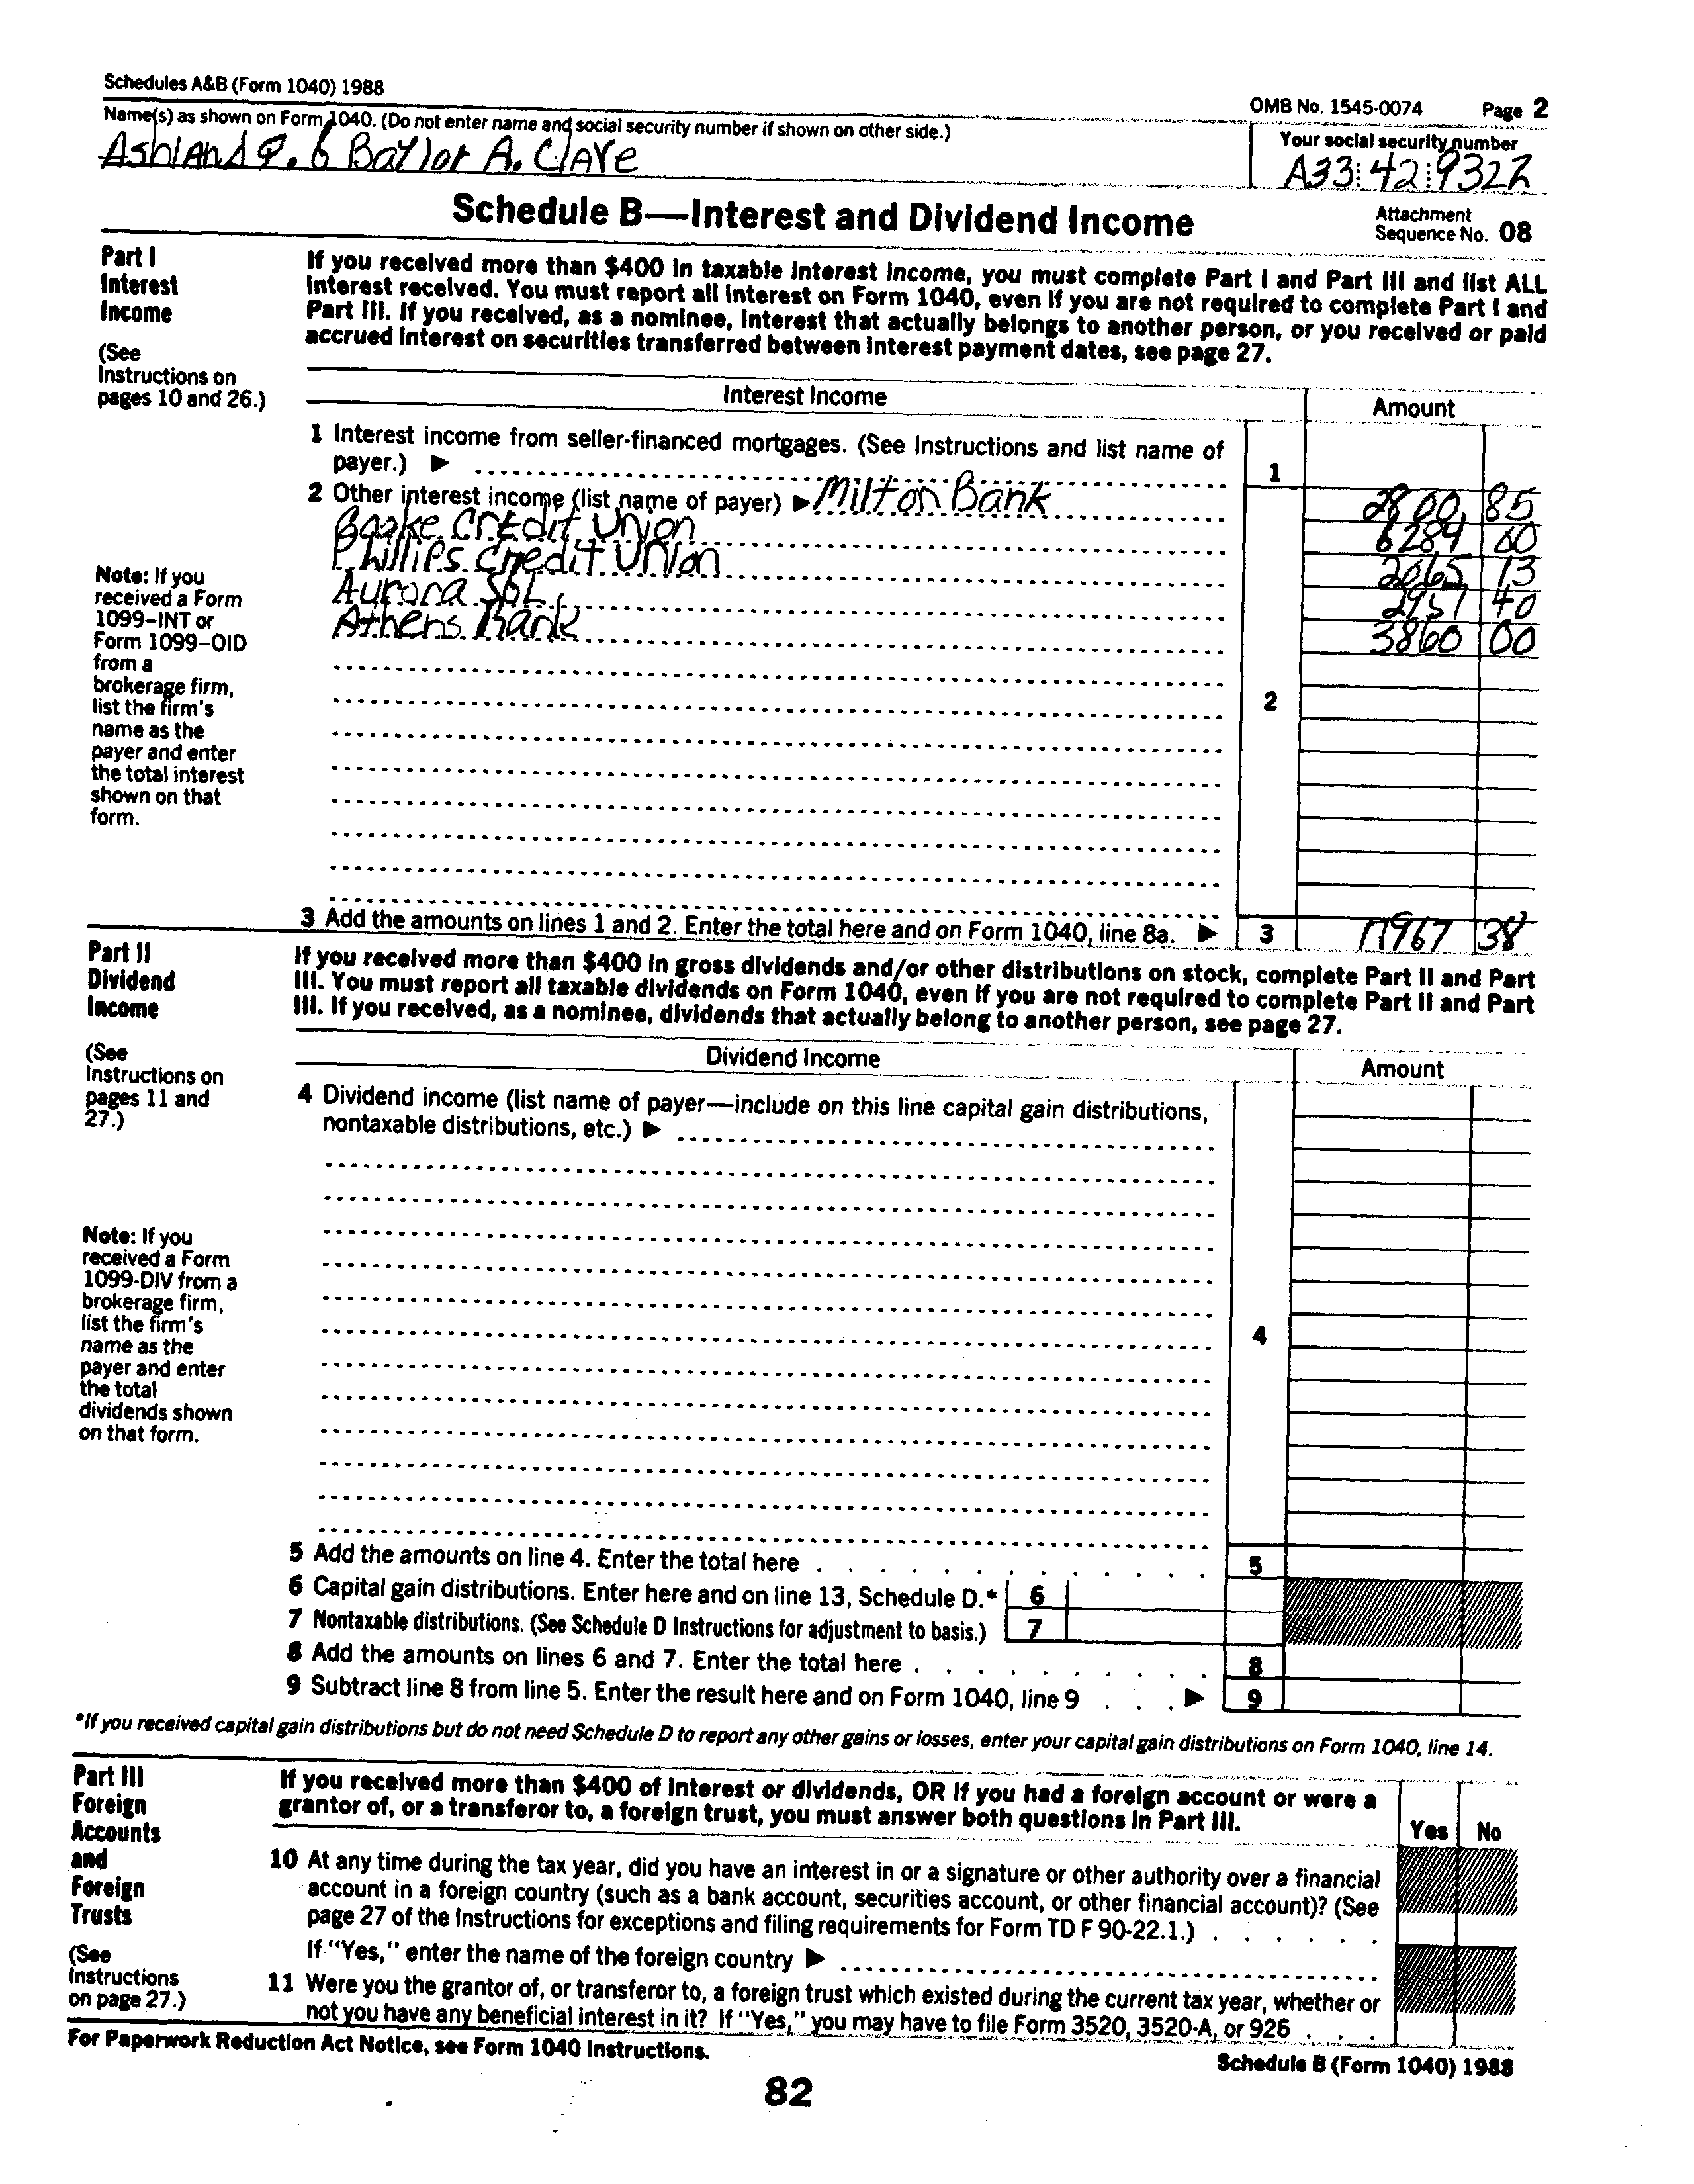 Schedules A&B (Form 1040) 1988
OMB No. 1545-0074 Page 2
Name(s) as shown on Form 1040. (Do not enter name and social security number if shown on other side.)
Your social security number
Ashland Q. & Baylor A. Clare
A33 42 9322
Schedule B—Interest and Dividend Income
Attachment
Sequence No. 08
Part I
Interest
Income
(See
Instructions on
pages 10 and 26.)
If you received more than $400 in taxable interest income, you must complete Part I and Part III and list ALL
interest received. You must report all interest on Form 1040, even if you are not required to complete Part I and
Part III. If you received, as a nominee, interest that actually belongs to another person, or you received or paid
accrued interest on securities transferred between interest payment dates, see page 27.
Interest Income Amount
1 Interest income from seller-financed mortgages. (See Instructions and list name of
payer.) ▶ 1
2 Other interest income (list name of payer) ▶ Milton Bank 2800 85
Credit Union 6284 00
Phillips Credit Union 2065 13
Aurora S&L 2957 40
Athens Bank 3860 00
2
Note: If you
received a Form
1099–INT or
Form 1099–OID
from a
brokerage firm,
list the firm's
name as the
payer and enter
the total interest
shown on that
form.
3 Add the amounts on lines 1 and 2. Enter the total here and on Form 1040, line 8a. ▶ 3 17967 38
Part II
Dividend
Income
(See
Instructions on
pages 11 and
27.)
If you received more than $400 in gross dividends and/or other distributions on stock, complete Part II and Part
III. You must report all taxable dividends on Form 1040, even if you are not required to complete Part II and Part
III. If you received, as a nominee, dividends that actually belong to another person, see page 27.
Dividend Income Amount
4 Dividend income (list name of payer—include on this line capital gain distributions,
nontaxable distributions, etc.) ▶
4
Note: If you
received a Form
1099-DIV from a
brokerage firm,
list the firm's
name as the
payer and enter
the total
dividends shown
on that form.
5 Add the amounts on line 4. Enter the total here 5
6 Capital gain distributions. Enter here and on line 13, Schedule D.* 6
7 Nontaxable distributions. (See Schedule D Instructions for adjustment to basis.) 7
8 Add the amounts on lines 6 and 7. Enter the total here 8
9 Subtract line 8 from line 5. Enter the result here and on Form 1040, line 9 ▶ 9
*If you received capital gain distributions but do not need Schedule D to report any other gains or losses, enter your capital gain distributions on Form 1040, line 14.
Part III
Foreign
Accounts
and
Foreign
Trusts
(See
Instructions
on page 27.)
If you received more than $400 of interest or dividends, OR if you had a foreign account or were a
grantor of, or a transferor to, a foreign trust, you must answer both questions in Part III.
Yes No
10 At any time during the tax year, did you have an interest in or a signature or other authority over a financial
account in a foreign country (such as a bank account, securities account, or other financial account)? (See
page 27 of the Instructions for exceptions and filing requirements for Form TD F 90-22.1.)
If "Yes," enter the name of the foreign country ▶
11 Were you the grantor of, or transferor to, a foreign trust which existed during the current tax year, whether or
not you have any beneficial interest in it? If "Yes," you may have to file Form 3520, 3520-A, or 926
For Paperwork Reduction Act Notice, see Form 1040 Instructions.
Schedule B (Form 1040) 1988
82